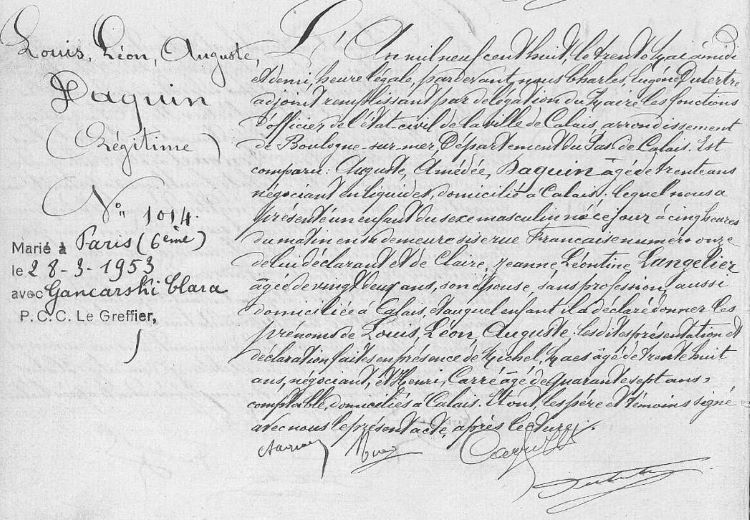 Louis, Léon, Auguste,
Daquin
(Légitime)
N° 1014.
Marié à Paris (6ème)
le 28-3-1953
avec Gancarski Clara
P.C.C. Le Greffier,
L'An mil neuf cent huit, le trente Mai à midi
et demi, heure légale, par devant, nous Charles, Eugène Dutertre
adjoint remplissant par délégation du Maire les fonctions
d'officier de l'état-civil de la ville de Calais, arrondissement
de Boulogne-sur-mer, Département du Pas de Calais. Est
comparu: Auguste, Amédée, Daquin âgé de trente ans
négociant en liquides, domicilié à Calais; lequel nous a
présenté un enfant du sexe masculin né ce jour à cinq heures
du matin en sa demeure sise rue Française numéro onze
de lui déclarant et de Claire, Jeanne Léontine Langelier
âgée de vingt neuf ans, son épouse, sans profession, aussi
domiciliée à Calais et auquel enfant il a déclaré donner les
prénoms de Louis, Léon, Auguste; les dites présentation et
déclaration faites en présence de Michel, Maes âgé de trente huit
ans, négociant, et Henri, Carré âgé de quarante sept ans,
comptable, domiciliés à Calais. Et ont, les père et témoins signé
avec nous le présent acte, après lecture.